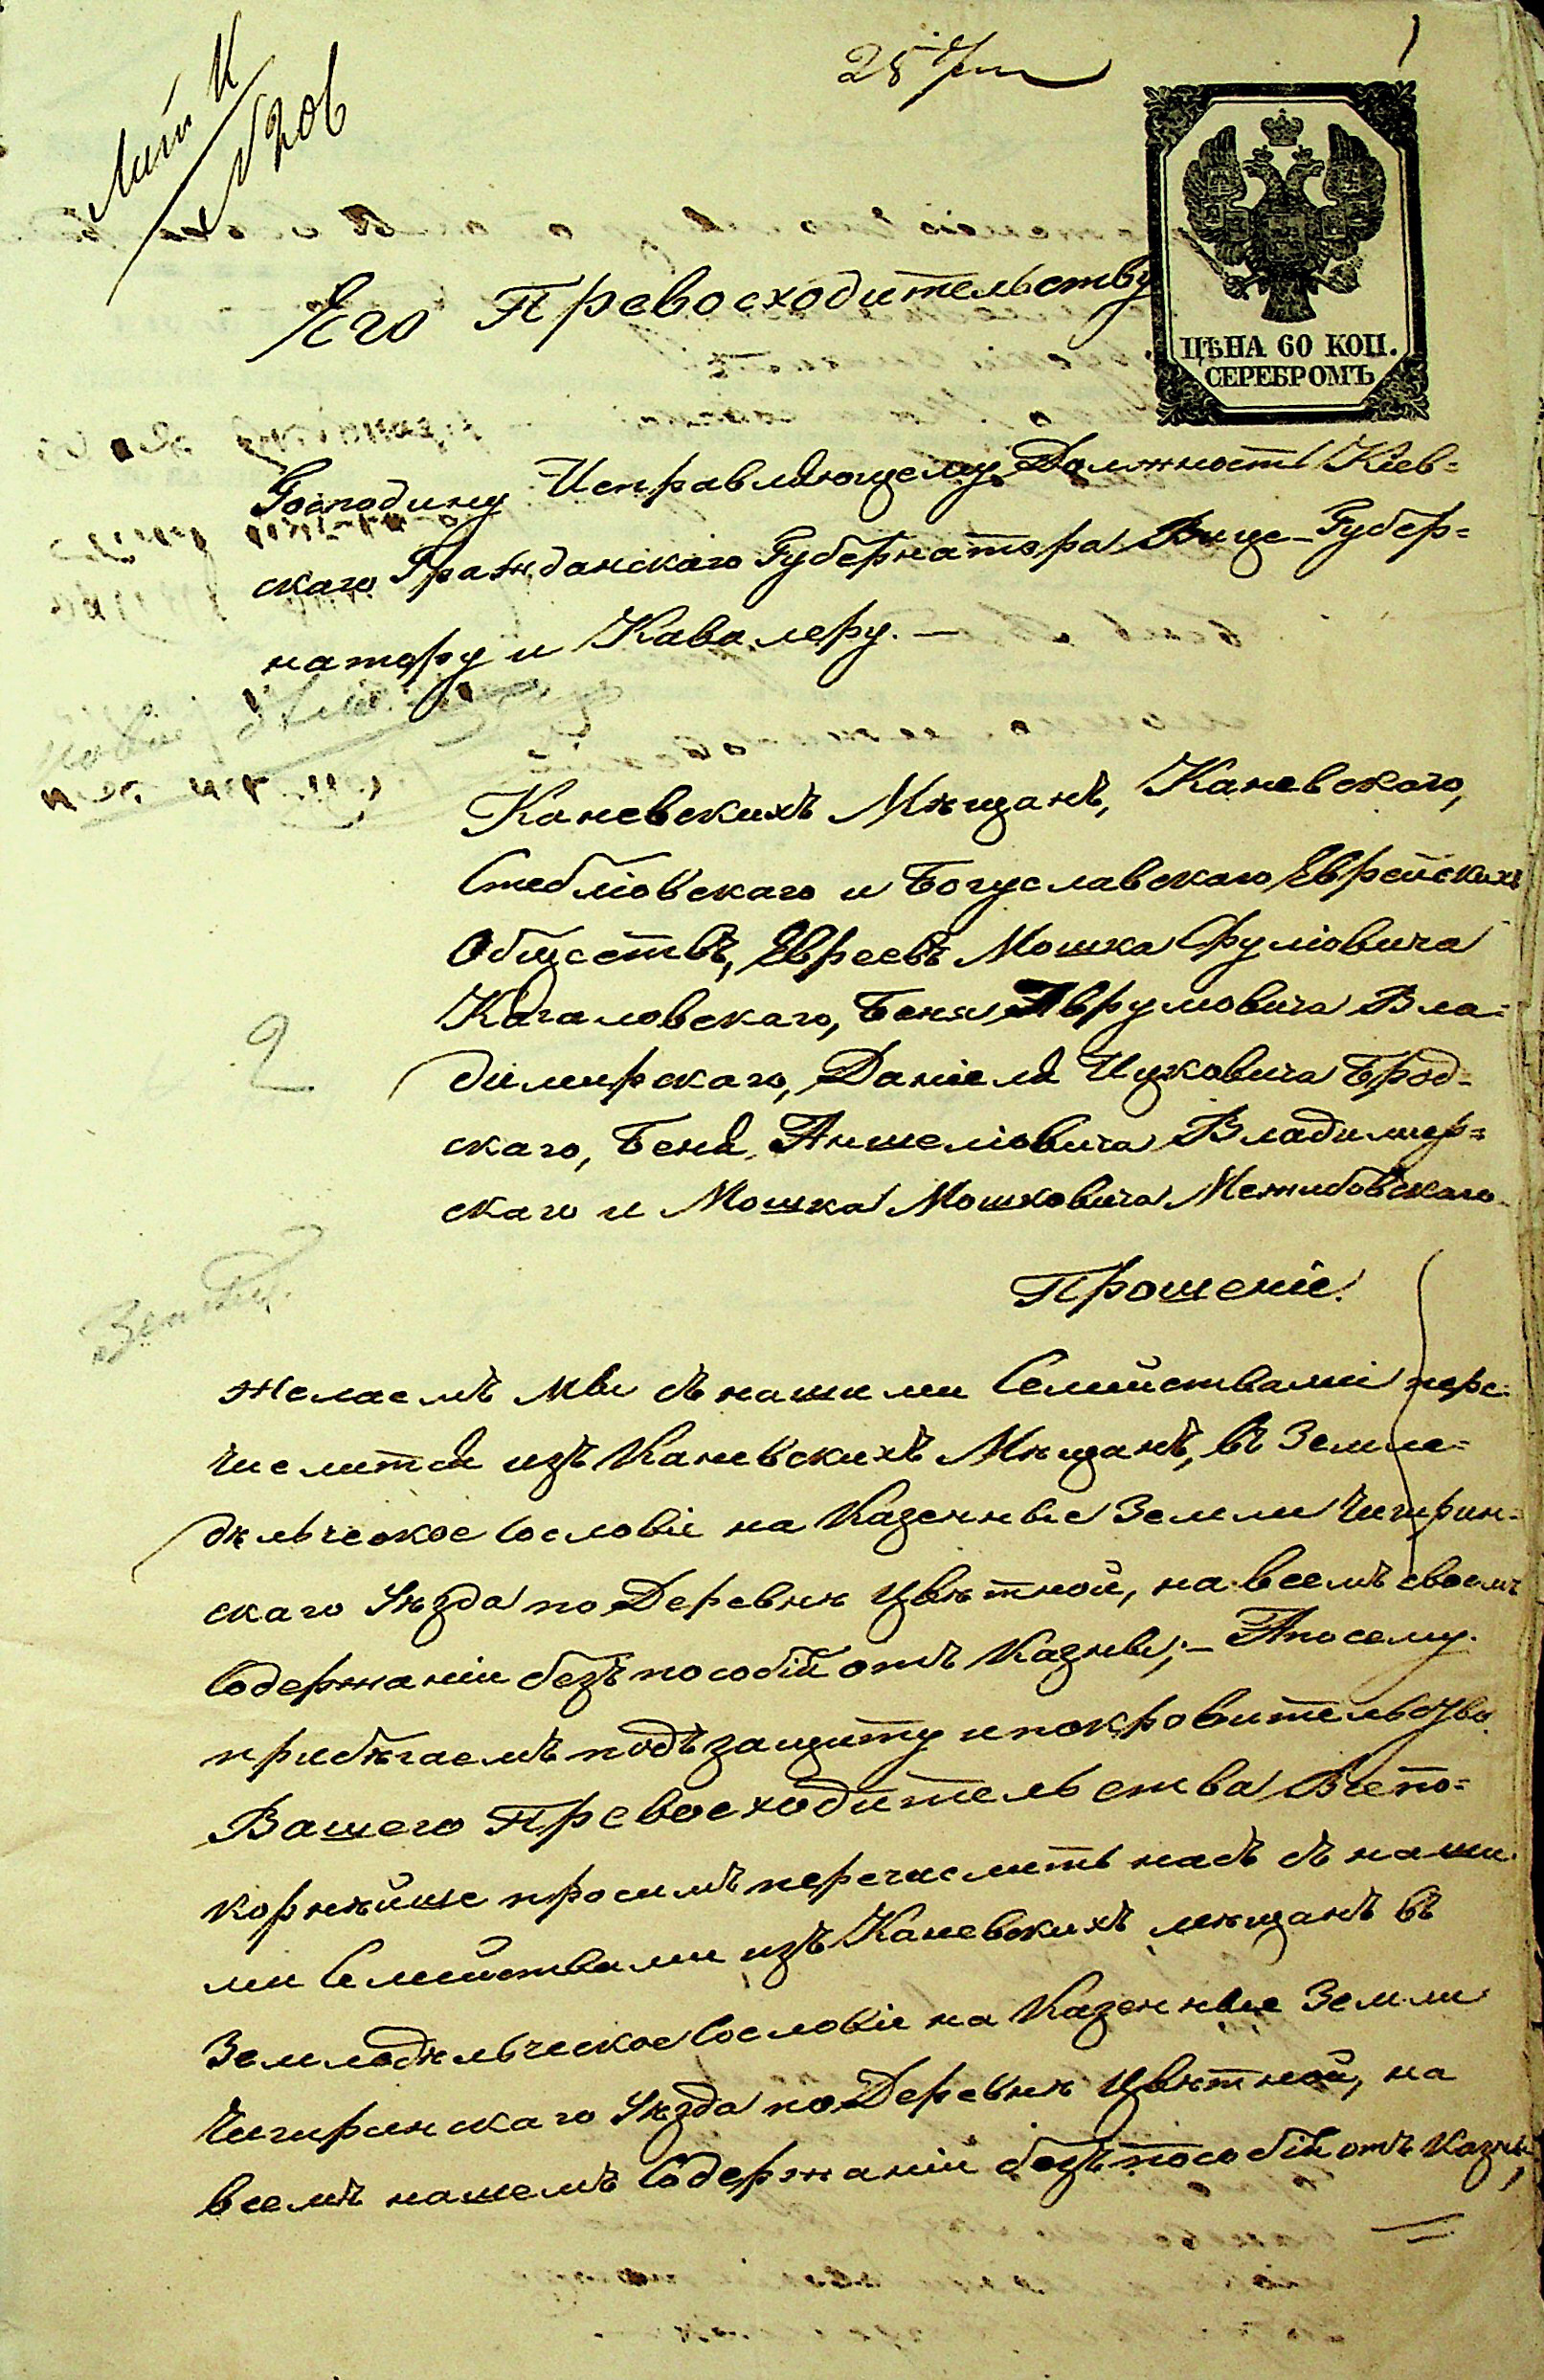 Лит К
№ 206
Его Превосходительству
ЦѢНА 60 КОП.
СЕРЕБРОМЪ
Господину Исправляющему Должность Кіев=
скаго Гражданскаго Губернатора Вице-Губер=
натору и Кавалеру. —
Каневскихъ Мѣщанъ, Каневскаго,
Стебліовскаго и Богуславскаго Еврейскихъ
Обществъ, Евреевъ Мошка Сруліовича
Кагаловскаго, Беня Аврумовича Вла=
димирскаго, Даніеля Ицковича Брод=
скаго, Беня Аншеліовича Владимир=
скаго и Мошка Мошковича Межибовскаго
2
Прошеніе.
Желаемъ мы съ нашими Семействами пере=
числится изъ Каневскихъ Мѣщанъ, въ Земле=
дѣльческое Сословіе на Казенные Земли Чигирин=
скаго Уѣзда по Деревнѣ Цвѣтной, на всемъ своемъ
Содержаніи безъ пособій отъ Казны; — А посему
прибѣгаемъ подъ защиту и покровительство
Вашего Превосходительства Всепо=
корнѣйше просимъ перечислить насъ съ наши
ми Семействами изъ Каневскихъ мѣщанъ въ
Земледѣльческое Сословіе на Казенные Земли
Чигиринскаго Уѣзда по Деревнѣ Цвѣтной, на
всемъ нашемъ Содержаніи безъ пособій отъ Казны,